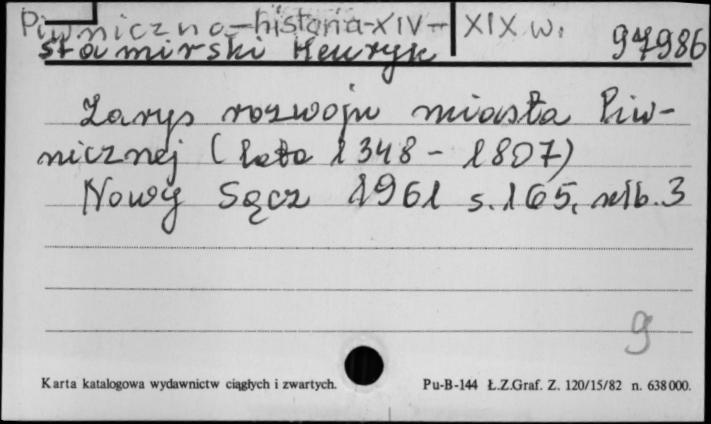 Piwniczna-historia-XIV-XIX w.
Stamirski Henryk 97986
Zarys rozwoju miasta Piw-
nicznej (lata 1348-1807)
Nowy Sącz 1961 s.165, nlb.3
9
Karta katalogowa wydawnictw ciągłych i zwartych. Pu-B-144 Ł.Z.Graf. Z. 120/15/82 n. 638000.